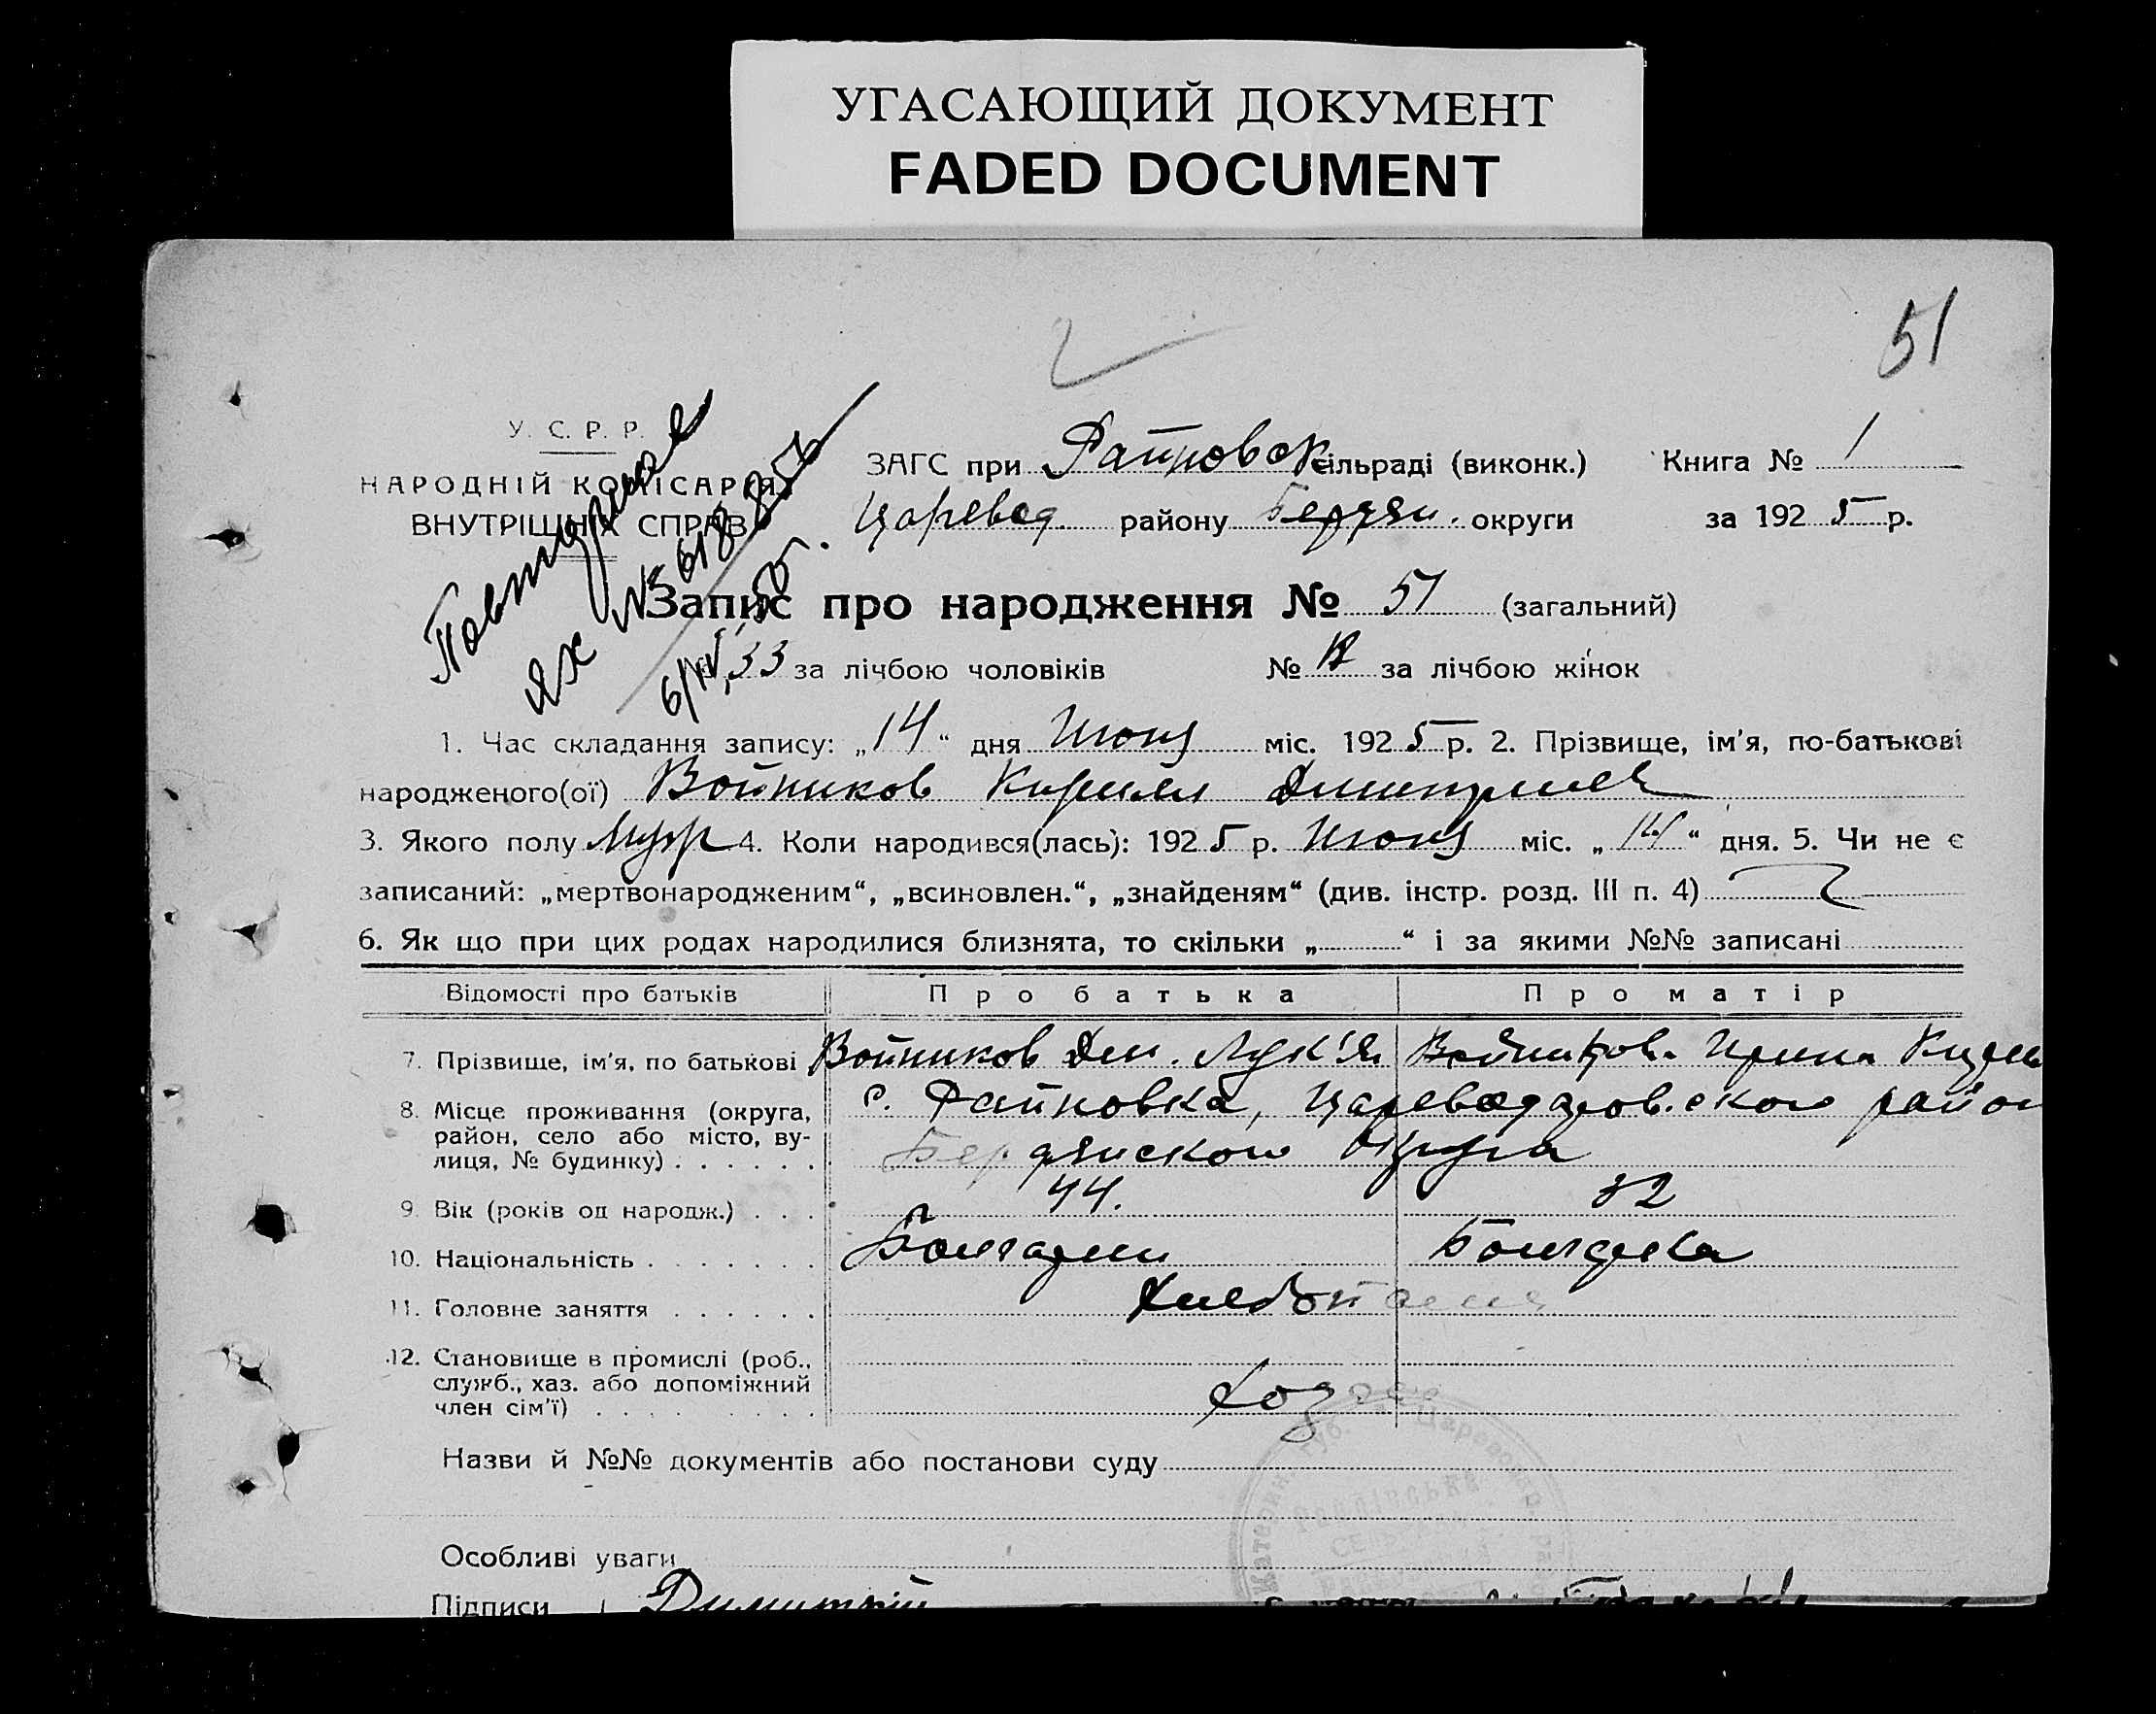 УГАСАЮЩИЙ ДОКУМЕНТ
FADED DOCUMENT
51
У. С. Р. Р.
НАРОДНІЙ КОМІСАРІЯТ
ВНУТРІШНІХ СПРАВ
ЗАГС при Райновск сільраді (виконк.) Книга № 1
Царевод. району Бердян. округи за 1925 р.
Запис про народження № 51 (загальний)
33 за лічбою чоловіків № за лічбою жінок
1. Час складання запису: „14“ дня Июня міс. 1925 р. 2. Прізвище, ім’я, по-батькові
народженого(ої) Войников Кирилл
3. Якого полу Муж 4. Коли народився(лась): 1925 р. Июня міс. „14“ дня. 5. Чи не є
записаний: „мертвонародженим“, „всиновлен.“, „знайденям“ (див. інстр. розд. III п. 4)
6. Як що при цих родах народилися близнята, то скільки „ “ і за якими №№ записані
Відомості про батьків Про батька Про матір
7. Прізвище, ім’я, по батькові Войников Дм. Лук’ян Войников. Ирина
8. Місце проживання (округа, с. Райновка, Цареводаров.ского район
район, село або місто, ву- Бердянского Округа
лиця, № будинку)
9. Вік (років од народж.) 44. 32
10. Національність Болгарин Болгарка
11. Головне заняття
12. Становище в промислі (роб.,
служб., хаз. або допоміжний
член сім’ї)
Назви й №№ документів або постанови суду
Особливі уваги
Підписи Димитрий